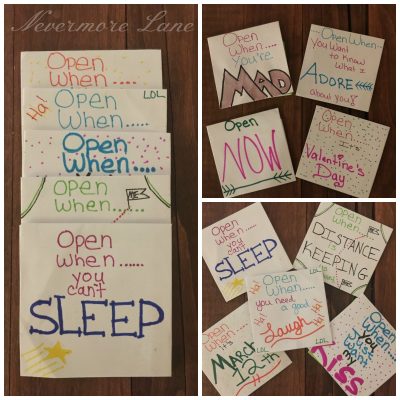 Nevermore Lane
Open
When.....
Ha!
LOL
Open
When.....
Open
When....
Open
When......
ME
Open
When......
you
can't
SLEEP
Open
When....
You're
MAD
Open When...
You Want
to Know
What I
ADORE
about you?
Open
NOW
Open
When.....
It's
Valentine's
Day
Open
When......
you
can't
SLEEP
Open
When......
ME
DISTANCE
is
KEEPING
to
Open
When....
you need
a good
Laugh
Ha!
Ha!
Ha!
LOL
LOL
Open
When....
it's
MARCH
12th
LOL
Open
When...
You
Just
Want
My
KISS